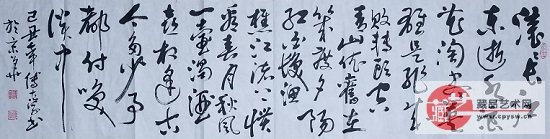 滚滚长江
东逝水浪
花淘尽英
雄是非成
败转头空
青山依旧在
几度夕阳
红白发渔
樵江渚上惯
看春月秋风
一壶浊酒
喜相逢古
今多少事
都付笑
谈中
己丑年
於京
藏品艺术网
www.cpysw.cn